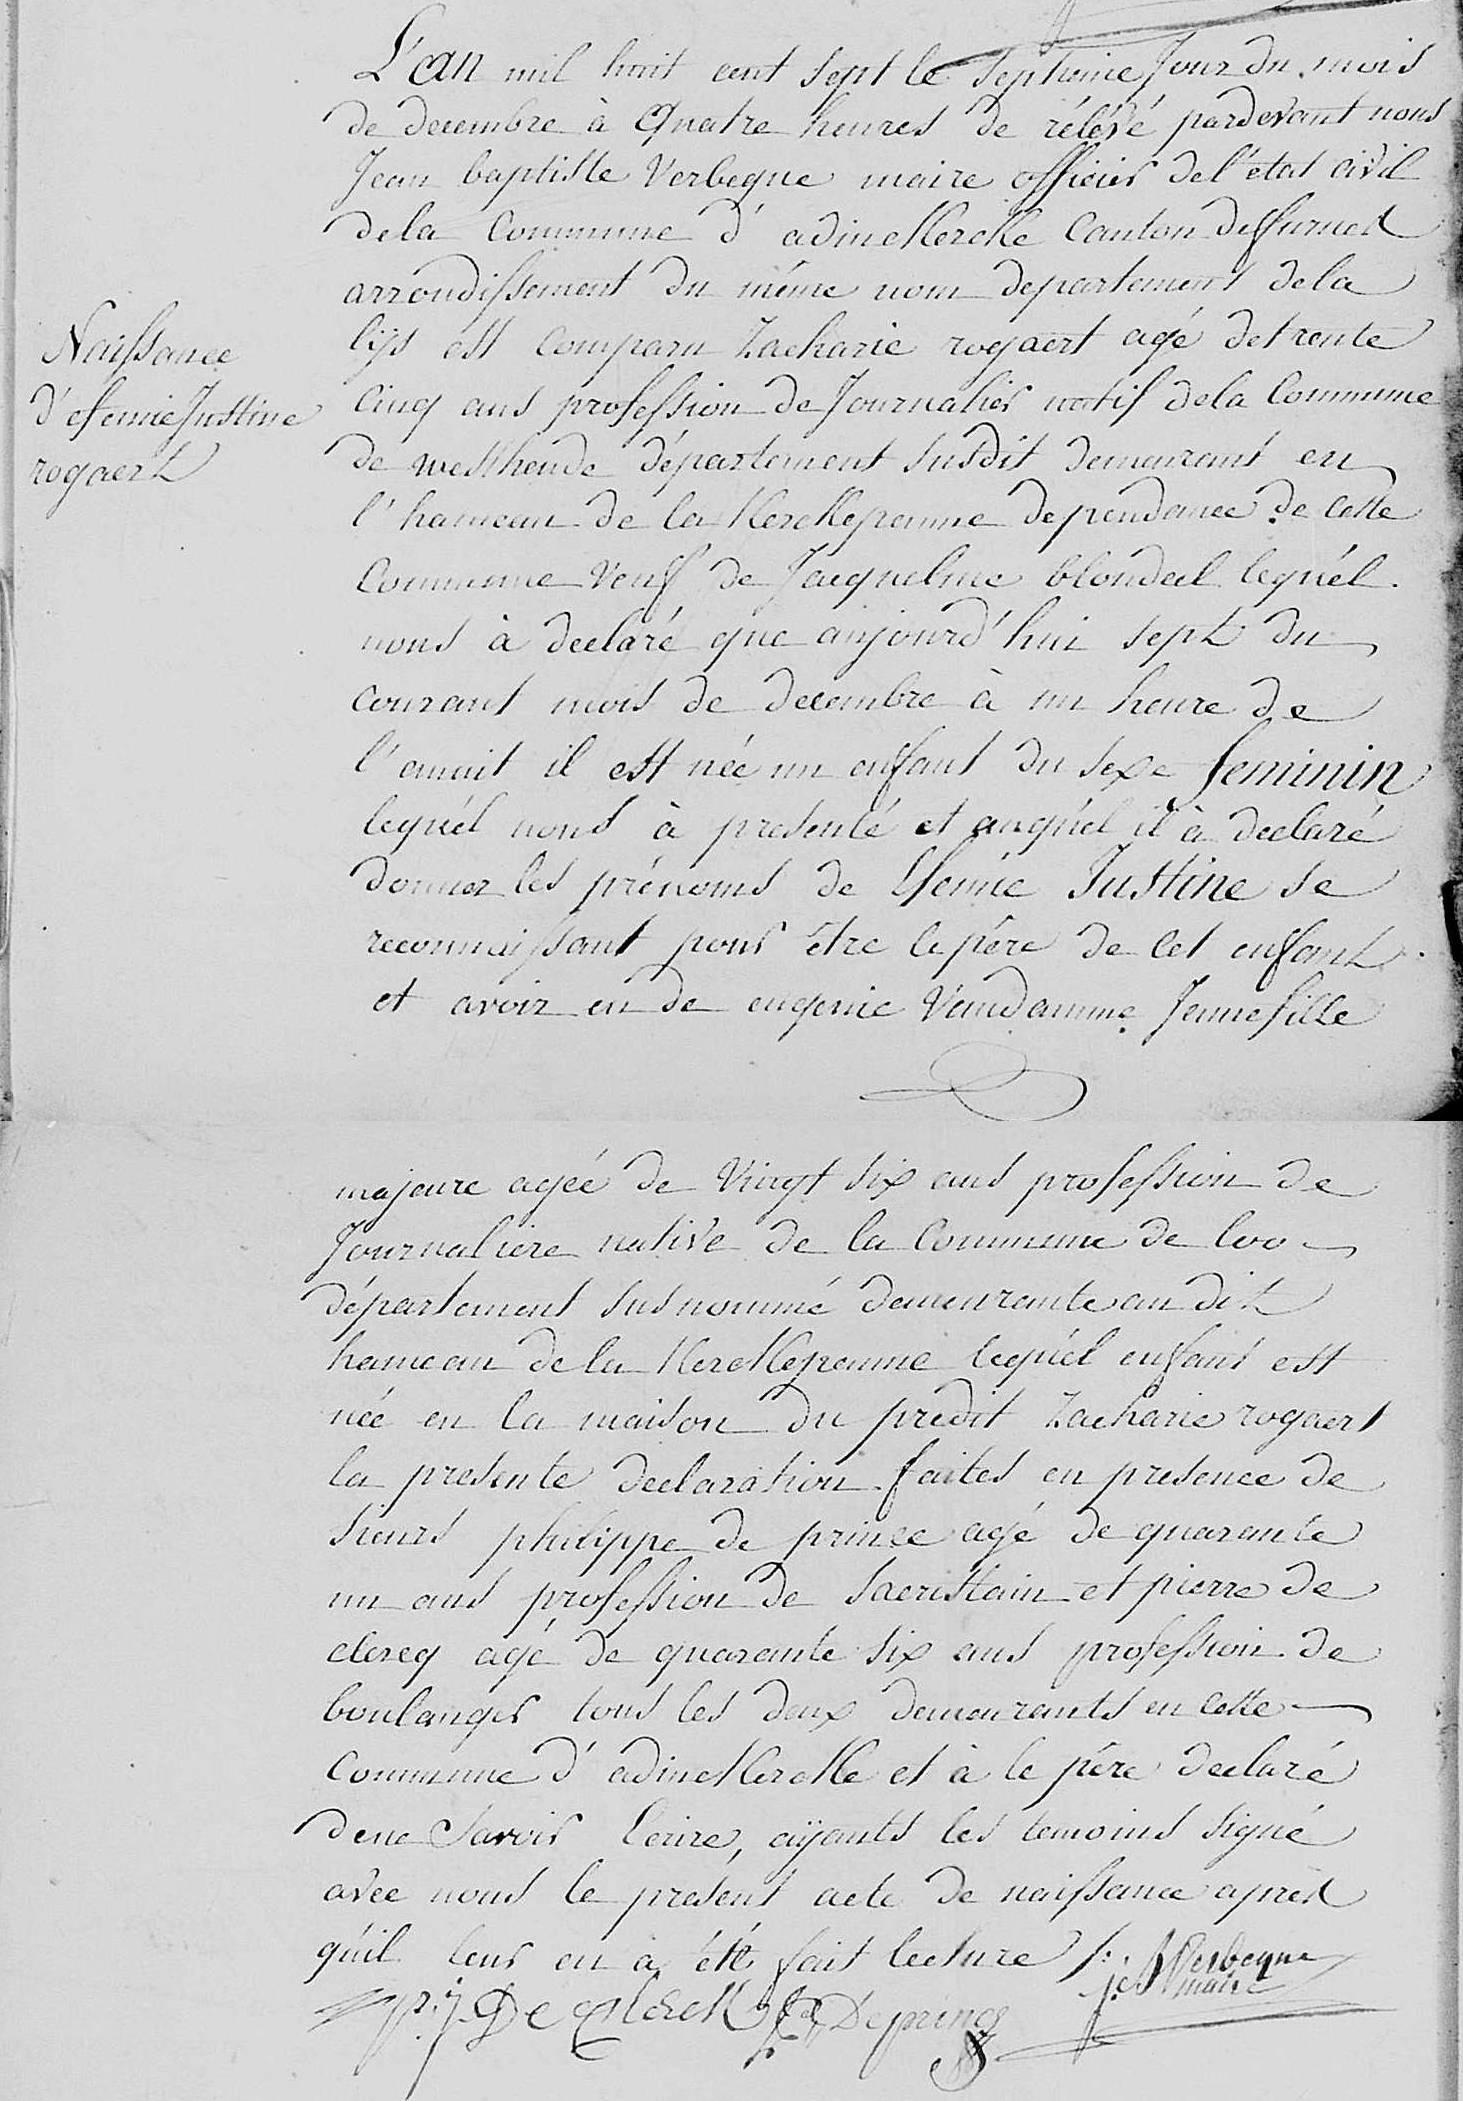 L'an mil huit cent sept le septieme Jour du mois
de decembre à Quatre heures de rélévé pardevant nous
Jean baptiste Verbeque maire officier de l'état civil
dela Commune d'adinckercke Canton de furnes
arrondissement du même nom departement dela
lijs est comparu Zacharie rogaert agé de trente
Cinq ans profession de Journalier natif dela Commune
de westhende département susdit demeurant en
l'hameau de la Kerckepanne dependance de cette
Commune Veuf de Jacqueline blondeel lequél
nous à declaré que aujourd'hui sept du
courant mois de decembre à un heure de
l'anuit il est née un enfant du sexe feminin
lequél nous à presenté et auquél il à declaré
donner les prénoms de Efemie Justine se
reconnaissant pour être le père de cet enfant
et avoir eu de eugenie Vandamme Jeune fille
Naissance
d'efemie Justine
rogaert
majeure agée de Vingt six ans profession de
Journaliere native de la Commune de loo
département susnommé demeurante au dit
hameau de la Kerckepanne lequél enfant est
née en la maison du predit Zacharie rogaert
la presente declaration faites en presence de
sieurs philippe de prince agé de quarante
un ans profession de sacristain et pierre de
clercq agé de quarante six ans profession de
boulanger tous les deux demeurants en cette
Commune d'adinckercke et à le père declaré
de ne savoir Ecrire, aÿants les temoins signé
avec nous le présent acte de naissance après
qu'il leur en a été fait lecture /:
J: Verbeque
maire
p: j De Clerck Deprince